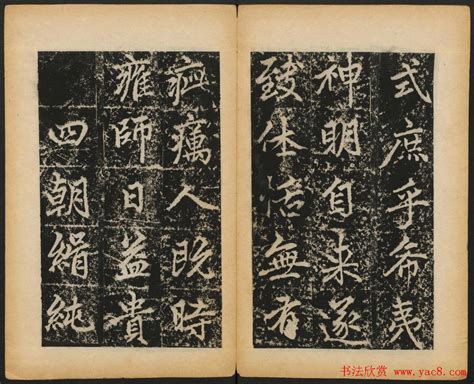 式庶乎希夷
神明自来遂
致体活無有
疵癘人既時
雍師日益貴
四朝緝純
书法欣赏 www.yac8.com